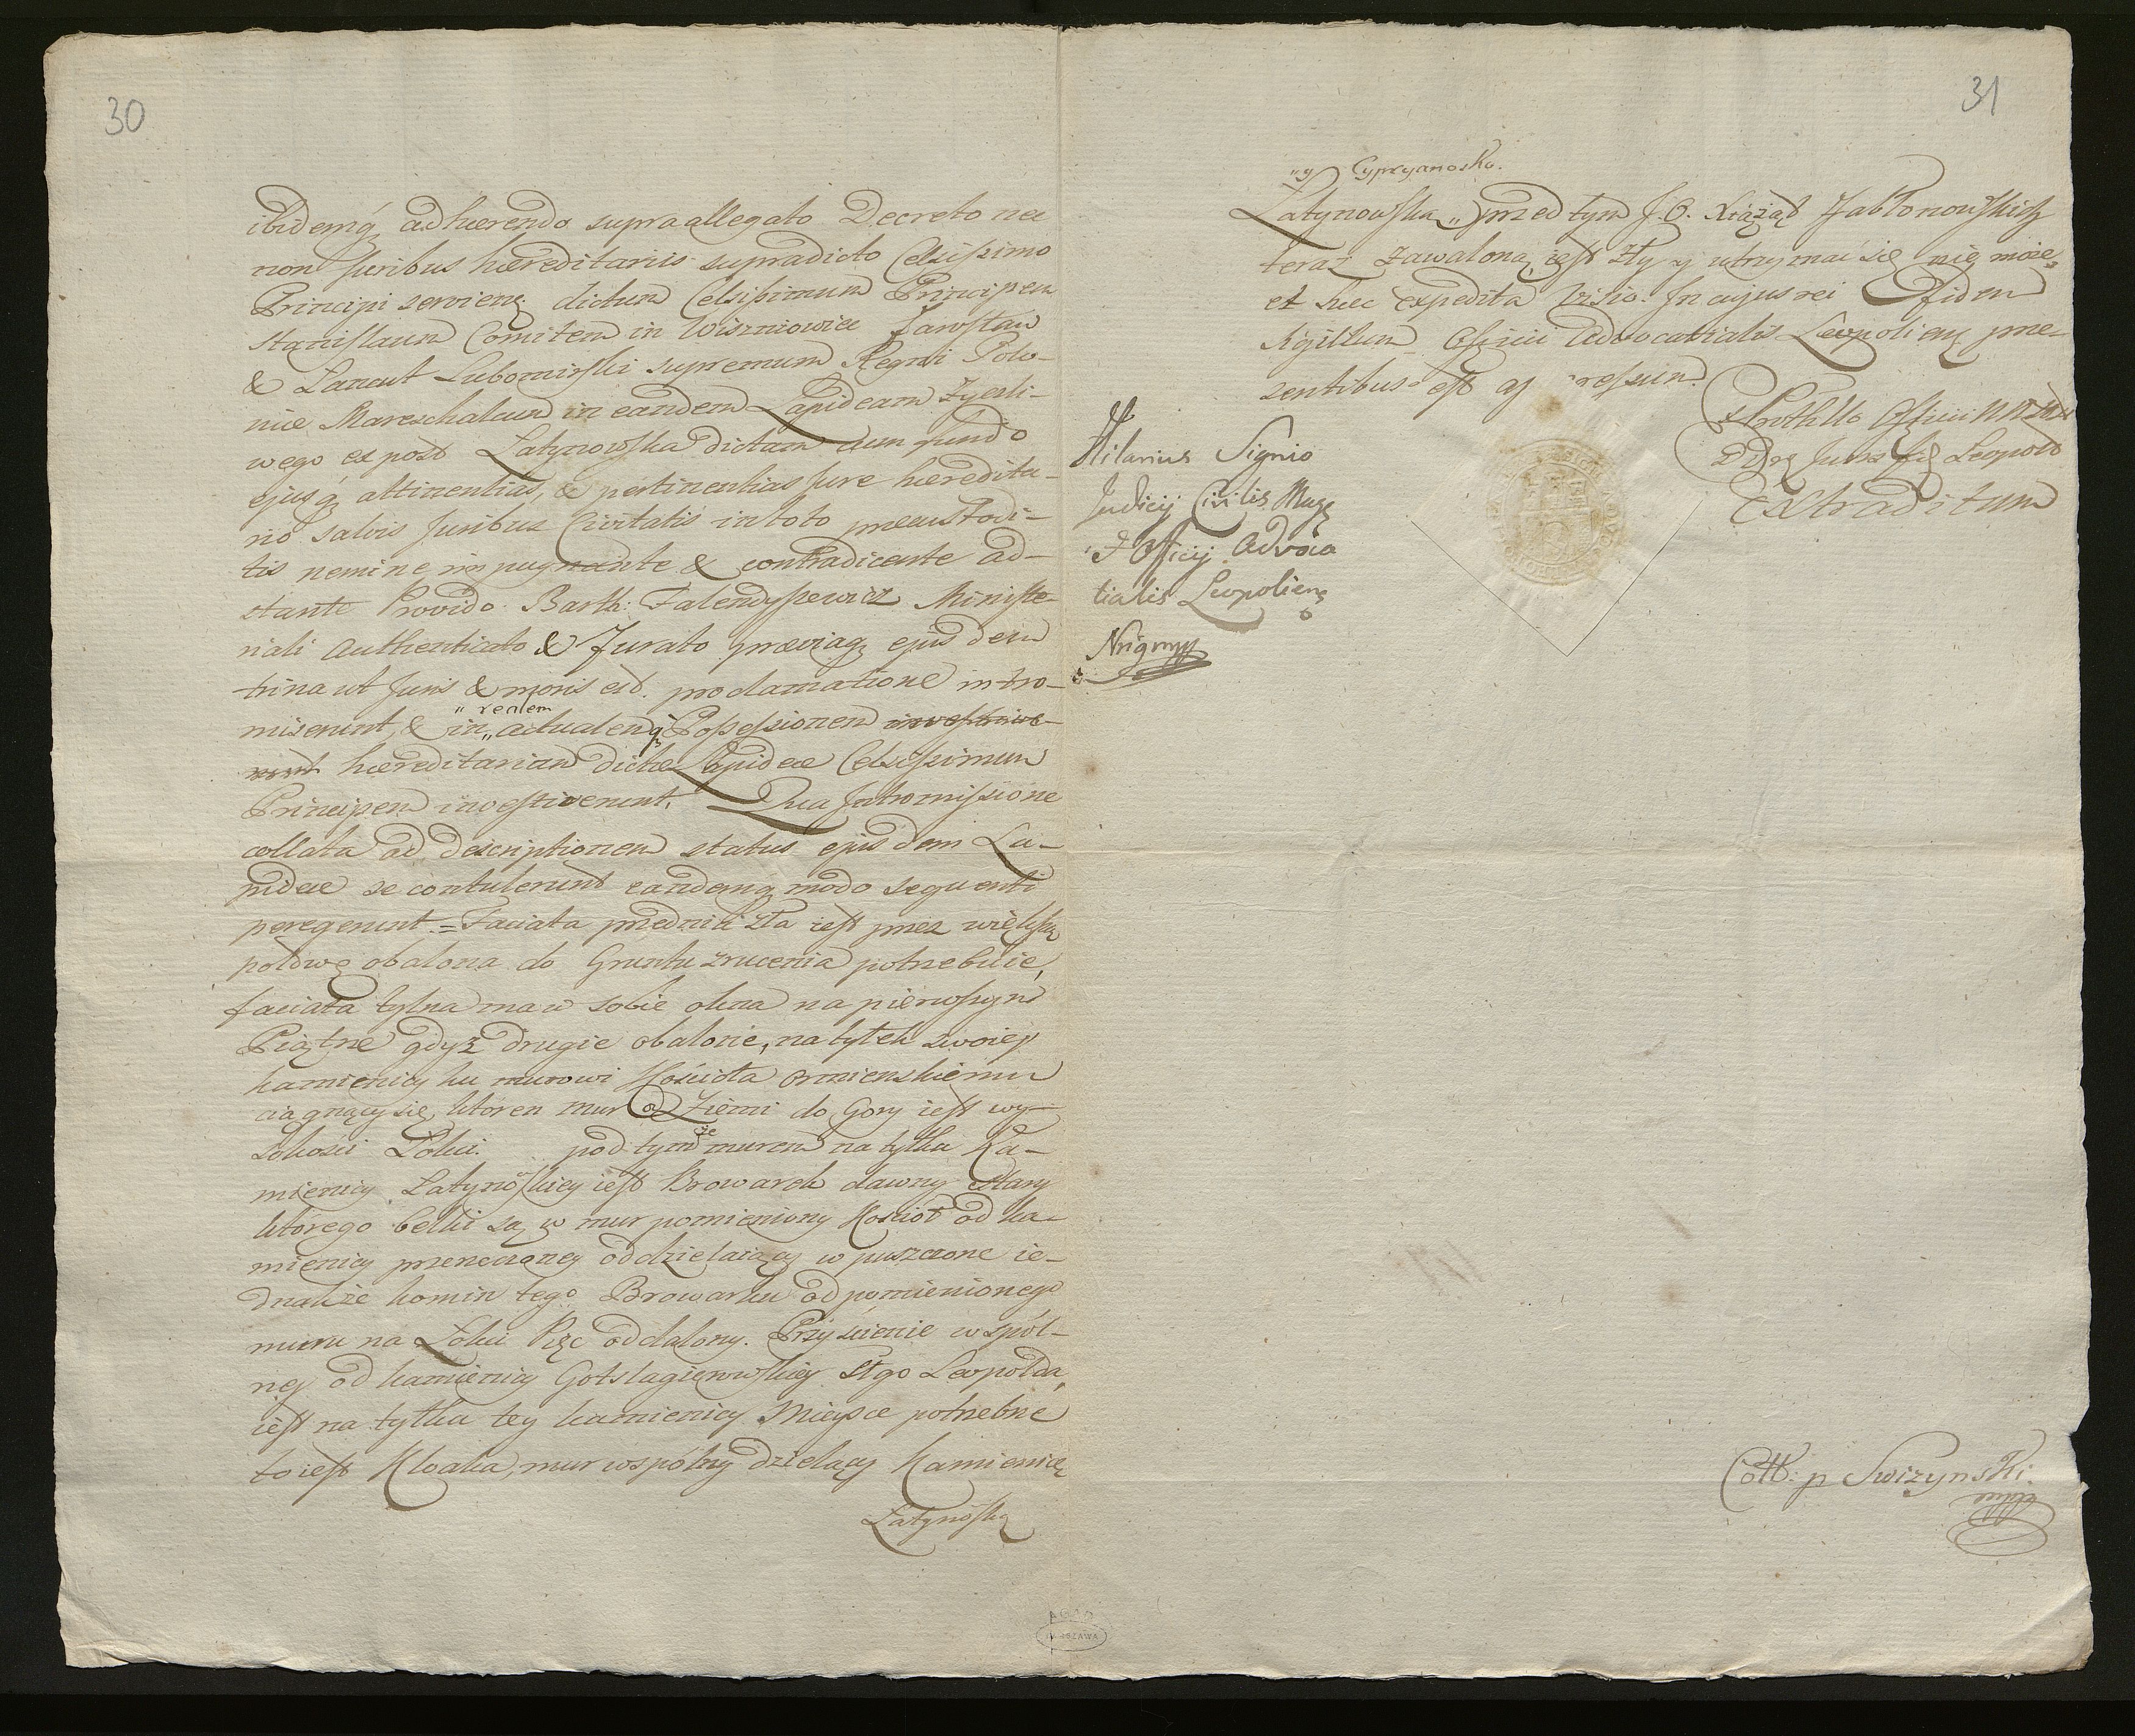 30
ibidemq, adhærendo supra allegato Decreto nec
non Juribus hæreditariis supradicto Celsissimo
Principi servienq; dictum Celsissimum Principem
Stanislaum Comitem in Wiszniowiec Jarosław
& Lancut Lubomirski supremum Regni Polo-
niæ Mareschalcum in eandem Lapideam Zyesli-
wego ex post Latynowska dictam cum fundo
ejusq, attinentias, & pertinentias Jure heredita-
rio salvis Juribus Civitatis in toto præcustodi-
tis nemine impugnante & contradicente ad-
stante Provido Barth: Falendyszewicz Ministe-
riali Authenticato & Jurato præviaq, ejusdem
trina ut Juris & moris est proclamatione intro-
miserunt, & in „ actualemq Possessionem investive-
" realem
runt hæreditariam dictæ Lapideæ Celsissimum
Principem investiverunt. Qua Intromissione
collata ad descriptionem status ejusdem La-
pideæ se contulerunt eandemq modo sequenti
peregerunt = Faciata przednia zła iest przez większą
połowę obalona do Gruntu zrucenia potrzebuie,
faciata tylna ma w sobie okna na pierwszym
Piątrze gdyż drugie obalone, na tyłek swoiey
kamienicy ku murowi Kościoła ormienskiemu
ciągnący się, ktoren mur od Ziemi do Gory iest wy-
sokości Łokci. pod tymże murem na tyłku Ka-
mienicy Latynoskiey iest Browarek dawny stary
ktorego belki są w mur pomieniony Kościół od ka-
mienicy przerzeczoney oddzielaiący wpuszczone ie-
dnakże komin tego Browarku od pomienionego
muru na Łokci Pięć oddalony. Przyscienie wspól-
ney od kamienicy Gotslagierowskiey Sgo Leopolda,
iest na tyłku tey kamienicy Mieysce potrzebne
to iest Kloaka, mur wspólny dzielący Kamienicę
Latynoską
31
" y Cypryanoską.
Latynowską „ przed tym J. O. Xiążąt Jabłonowskich
teraz zawaloną, iest zły y utrzymać się nie może,
et hæc expedita Visio. In cujus rei Fidem
Sigillum Officii Advocatialis Leopolienq præ-
sentibus est
Hilarius Signio
Judicij Civilis Mag
& Officij Advoca
tialis Leopoliens
Nrigmpp
Extraditum
Coll: p Swizynski.
mpp
WARSZAWA